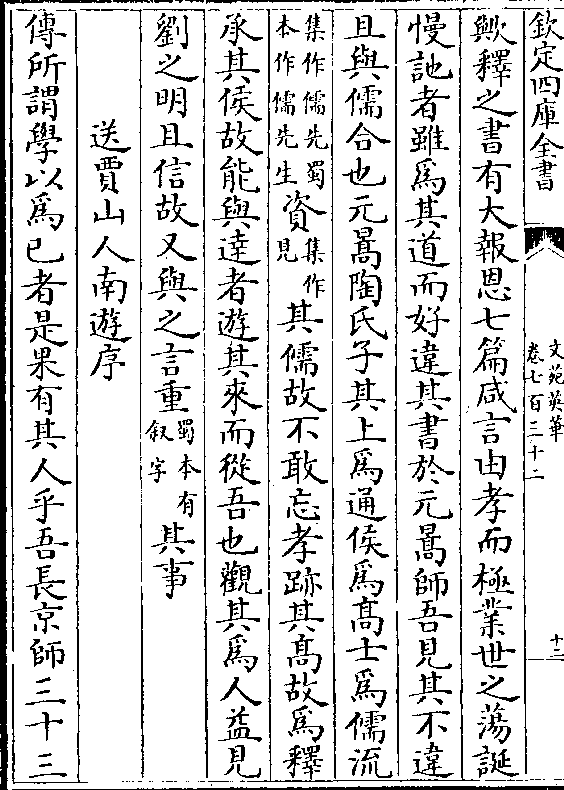 欽定四庫全書
文苑英華
卷七百三十二
十二
歟釋之書有大報恩七篇咸言由孝而極業世之蕩誕
慢訑者雖爲其道而好違其書於元暠師吾見其不違
且與儒合也元暠陶氏子其上爲通侯爲髙士爲儒流
集作儒先蜀
本作儒先生
資
集作
見
其儒故不敢忘孝跡其髙故爲釋
承其侯故能與達者遊其來而從吾也觀其爲人益見
劉之明且信故又與之言重
蜀本有
叙字
其事
送賈山人南遊序
傳所謂學以爲已者是果有其人乎吾長京師三十三